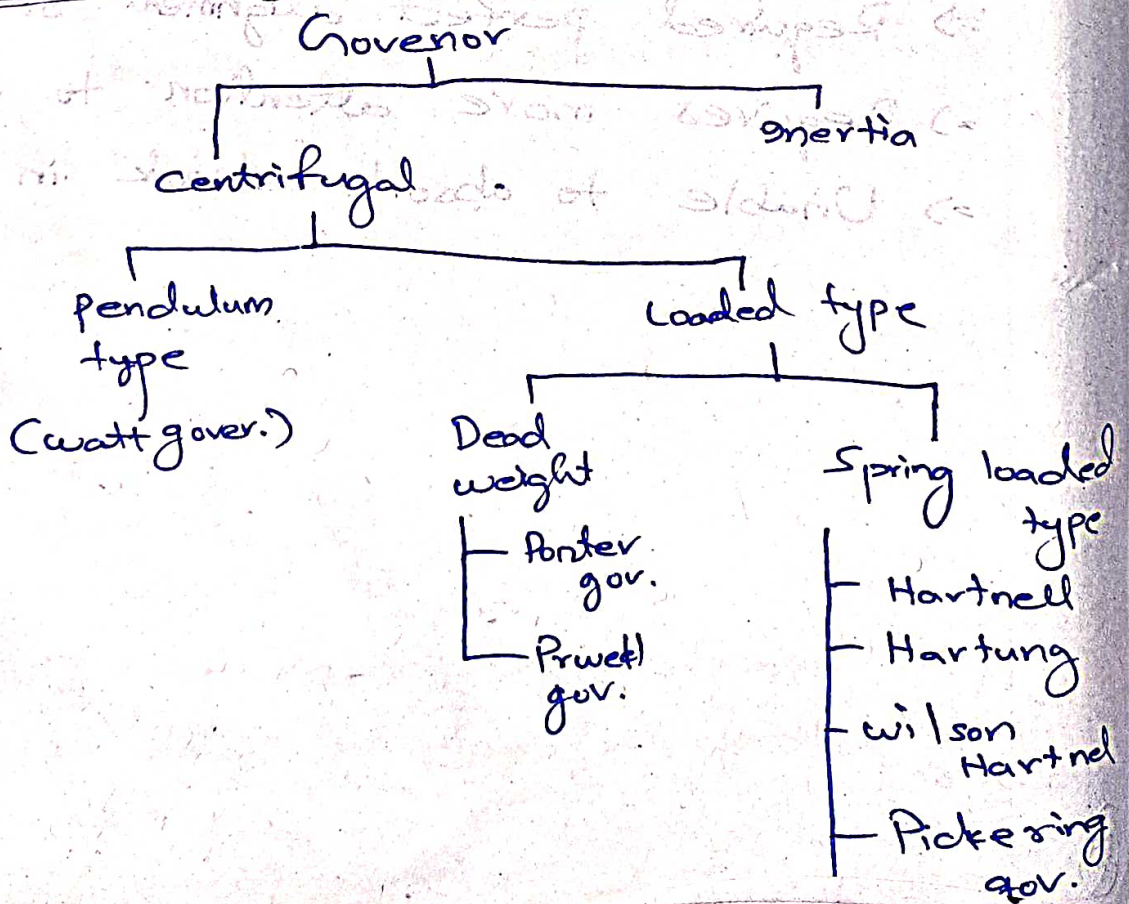 Govenor
Centrifugal
inertia
Pendulum
type
(watt gover.)
Loaded type
Dead
weight
Porter
gov.
Prwell
gov.
Spring loaded
type
Hartnell
Hartung
wilson
Hartnel
Pickering
gov.